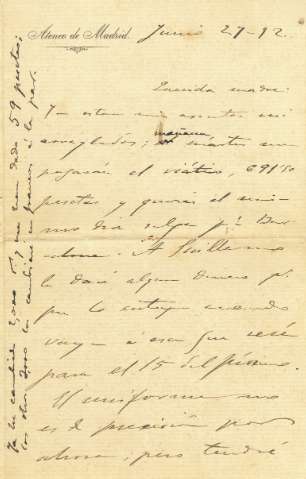 Ateneo de Madrid. Junio 27-12.
Querida madre:
Ya están mis asuntos casi
arreglados; mañana martes me
pagarán el viático, 691'50
pesetas y quizás el mis-
mo día salga pª Bar
celona. A Guillermo
le daré algún dinero pª
que lo entregue cuando
vaya a esa que será
para el 15 del próximo.
El uniforme no
es de precisión por
ahora; pero tendré
Ya he cambiado 2,000 y me han dado 59 pesetas;
los otros 3,000 los cambiaré en francos a la par.